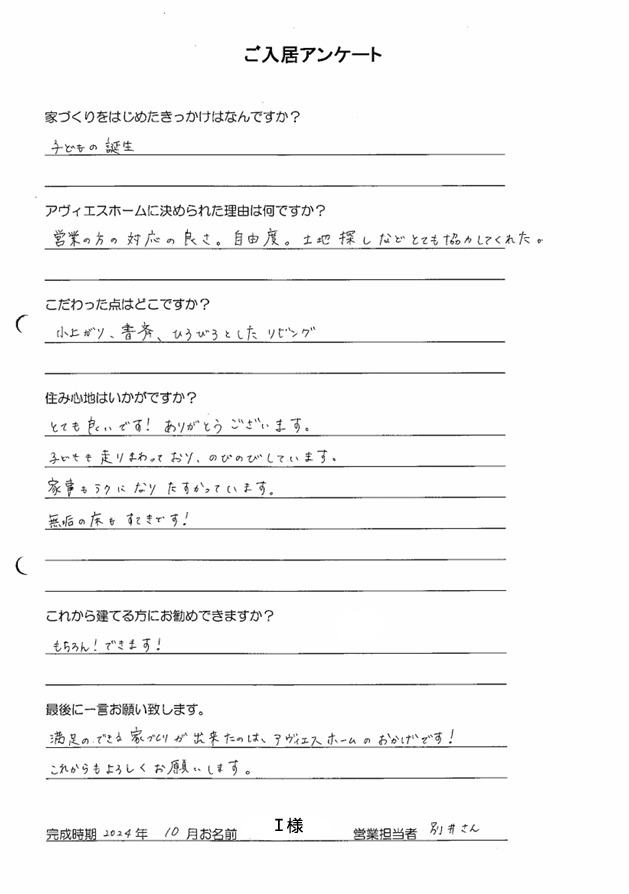 ご入居アンケート
家づくりをはじめたきっかけはなんですか?
子どもの誕生
アヴィエスホームに決められた理由は何ですか?
営業の方の対応の良さ。自由度。土地探しなどとても協力してくれた。
こだわった点はどこですか?
小上がり、書斎、ひろびろとしたリビング
住み心地はいかがですか?
とても良いです!ありがとうございます。
子どもも走りまわっており、のびのびしています。
家事もラクになりたすかっています。
無垢の床もすてきです!
これから建てる方にお勧めできますか?
もちろん!できます!
最後に一言お願い致します。
満足のできる家づくりが出来たのは、アヴィエスホームのおかげです!
これからもよろしくお願いします。
完成時期 2024年 10月 お名前 I様 営業担当者 別井さん